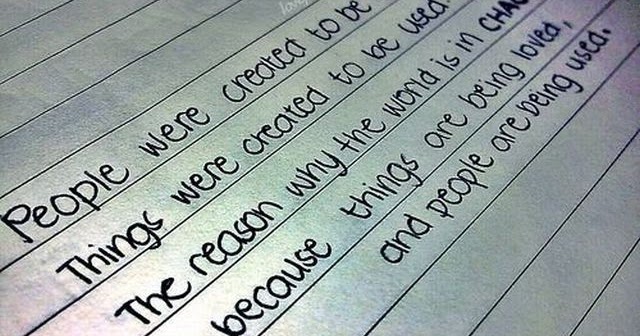 People were created to be
Things were created to be used.
The reason why the world is in CHAO
because things are being loved,
and people are being used.